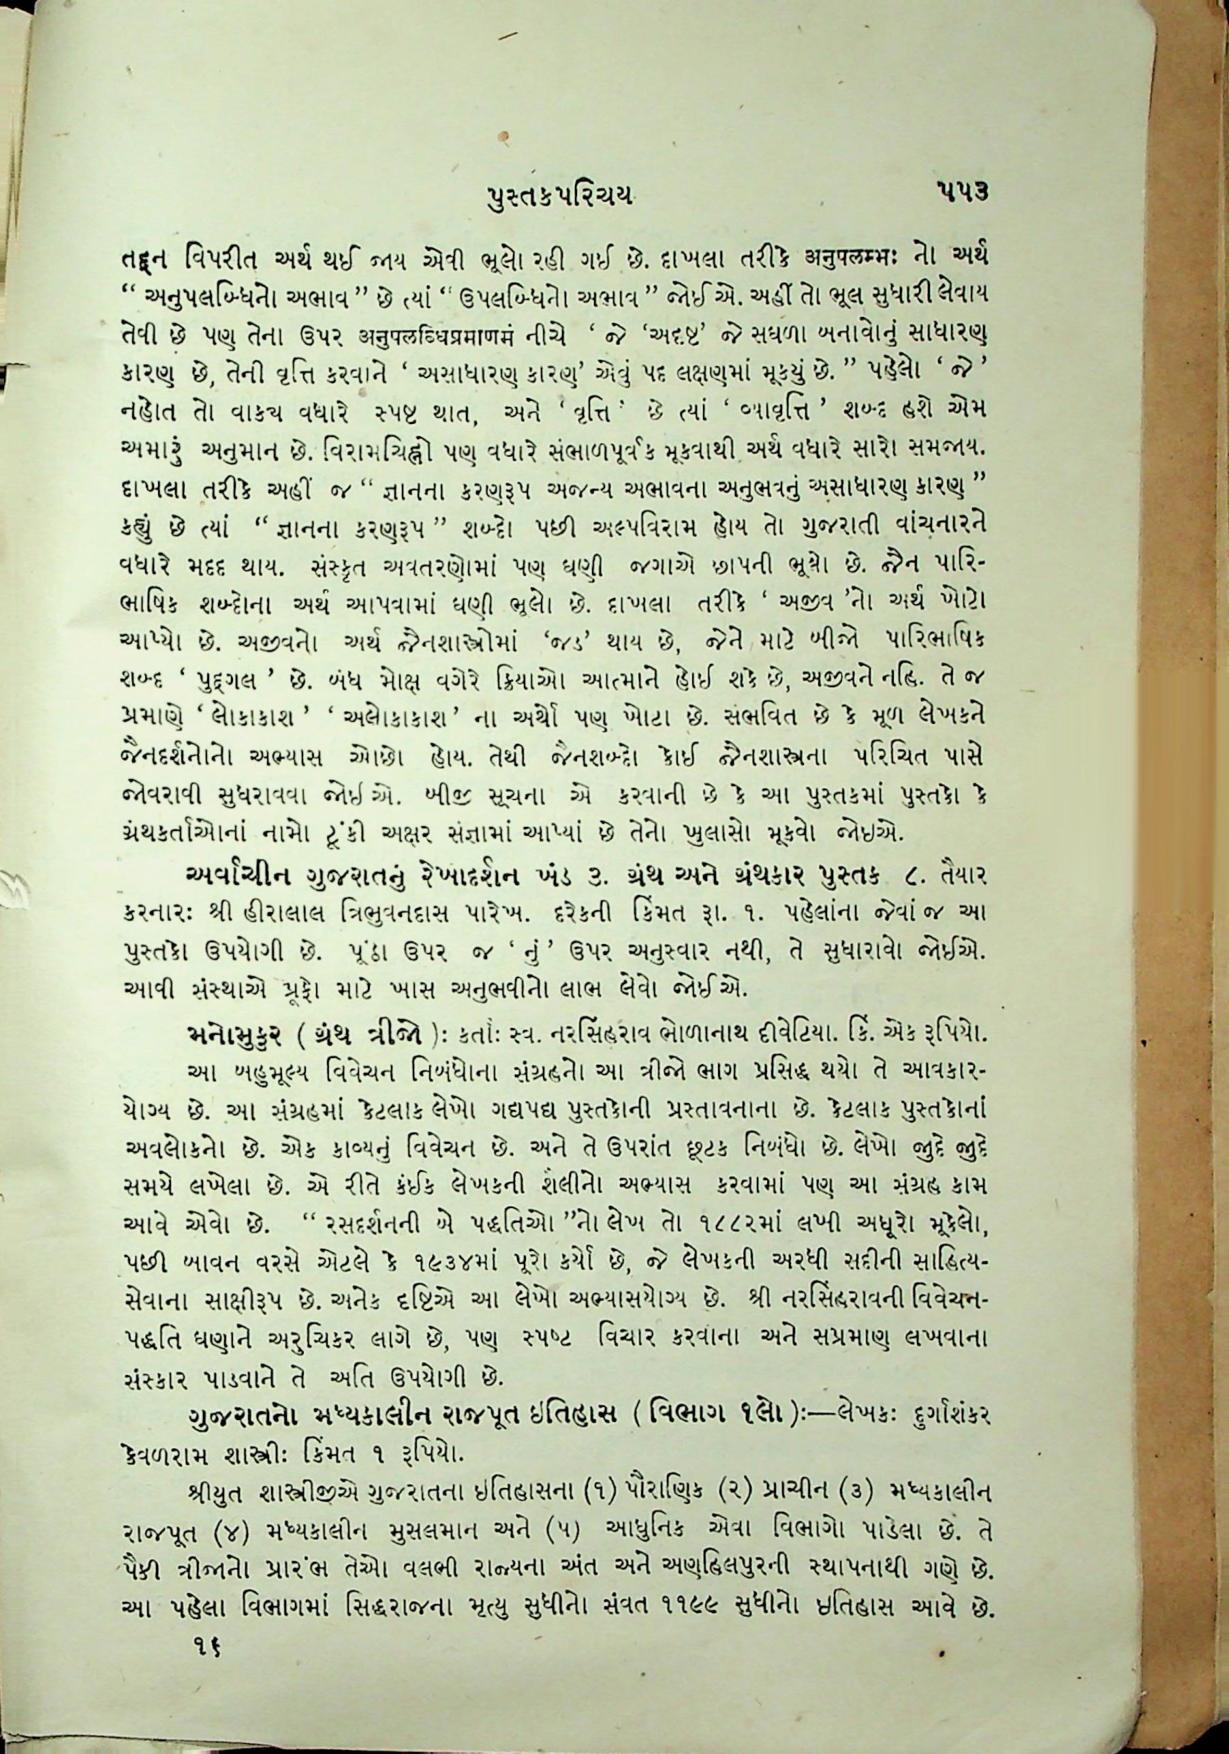 પુસ્તકપરિચય ૫૫૩
તદ્દન વિપરીત અર્થ થઈ જાય એવી ભૂલો રહી ગઈ છે. દાખલા તરીકે अनुपलम्भः નો અર્થ
“ અનુપલબ્ધિનો અભાવ ” છે ત્યાં “ ઉપલબ્ધિનો અભાવ ” જોઈએ. અહીં તો ભૂલ સુધારી લેવાય
તેવી છે પણ તેના ઉપર अनुपलब्धिप्रमाणमं નીચે ‘ જે ‘અદૃષ્ટ’ જે સઘળા બનાવોનું સાધારણ
કારણ છે, તેની વૃત્તિ કરવાને ‘ અસાધારણ કારણ’ એવું પદ લક્ષણમાં મૂકયું છે. ” પહેલો ‘ જે ’
નહોત તો વાકય વધારે સ્પષ્ટ થાત, અને ‘ વૃત્તિ ’ છે ત્યાં ‘ વ્યાવૃત્તિ ’ શબ્દ હશે એમ
અમારું અનુમાન છે. વિરામચિહ્નો પણ વધારે સંભાળપૂર્વક મૂકવાથી અર્થ વધારે સારો સમજાય.
દાખલા તરીકે અહીં જ “ જ્ઞાનના કરણરૂપ અજન્ય અભાવના અનુભવનું અસાધારણ કારણ ”
કહ્યું છે ત્યાં “ જ્ઞાનના કરણરૂપ ” શબ્દો પછી અલ્પવિરામ હોય તો ગુજરાતી વાંચનારને
વધારે મદદ થાય. સંસ્કૃત અવતરણોમાં પણ ઘણી જગાએ છાપની ભૂલો છે. જૈન પારિ-
ભાષિક શબ્દોના અર્થ આપવામાં ઘણી ભૂલો છે. દાખલા તરીકે ‘ અજીવ ’નો અર્થ ખોટો
આપ્યો છે. અજીવનો અર્થ જૈનશાસ્ત્રોમાં ‘જડ’ થાય છે, જેને માટે બીજો પારિભાષિક
શબ્દ ‘ પુદ્ગલ ’ છે. બંધ મોક્ષ વગેરે ક્રિયાઓ આત્માને હોઈ શકે છે, અજીવને નહિ. તે જ
પ્રમાણે ‘ લોકાકાશ ’ ‘ અલોકાકાશ ’ ના અર્થો પણ ખોટા છે. સંભવિત છે કે મૂળ લેખકને
જૈનદર્શનોનો અભ્યાસ ઓછો હોય. તેથી જૈનશબ્દો કોઈ જૈનશાસ્ત્રના પરિચિત પાસે
જોવરાવી સુધરાવવા જોઈએ. બીજી સૂચના એ કરવાની છે કે આ પુસ્તકમાં પુસ્તકો કે
ગ્રંથકર્તાઓનાં નામો ટૂંકી અક્ષર સંજ્ઞામાં આપ્યાં છે તેનો ખુલાસો મૂકવો જોઇએ.
અર્વાચીન ગુજરાતનું રેખાદર્શન ખંડ ૩. ગ્રંથ અને ગ્રંથકાર પુસ્તક ૮. તૈયાર
કરનાર: શ્રી હીરાલાલ ત્રિભુવનદાસ પારેખ. દરેકની કિંમત રૂા. ૧. પહેલાંના જેવાં જ આ
પુસ્તકો ઉપયોગી છે. પૂંઠા ઉપર જ ‘ નું ’ ઉપર અનુસ્વાર નથી, તે સુધારાવો જોઈએ.
આવી સંસ્થાએ પ્રૂફો માટે ખાસ અનુભવીનો લાભ લેવો જોઈએ.
મનોમુકુર ( ગ્રંથ ત્રીજો ): કર્તા: સ્વ. નરસિંહરાવ ભોળાનાથ દીવેટિયા. કિં. એક રૂપિયો.
આ બહુમૂલ્ય વિવેચન નિબંધોના સંગ્રહનો આ ત્રીજો ભાગ પ્રસિદ્ધ થયો તે આવકાર-
યોગ્ય છે. આ સંગ્રહમાં કેટલાક લેખો ગદ્યપદ્ય પુસ્તકોની પ્રસ્તાવનાના છે. કેટલાક પુસ્તકોનાં
અવલોકનો છે. એક કાવ્યનું વિવેચન છે. અને તે ઉપરાંત છૂટક નિબંધો છે. લેખો જુદે જુદે
સમયે લખેલા છે. એ રીતે કંઈક લેખકની શૈલીનો અભ્યાસ કરવામાં પણ આ સંગ્રહ કામ
આવે એવો છે. “ રસદર્શનની બે પદ્ધતિઓ ”નો લેખ તો ૧૮૮૨માં લખી અધૂરો મૂકેલો,
પછી બાવન વરસે એટલે કે ૧૯૩૪માં પૂરો કર્યો છે, જે લેખકની અરધી સદીની સાહિત્ય-
સેવાના સાક્ષીરૂપ છે. અનેક દૃષ્ટિએ આ લેખો અભ્યાસયોગ્ય છે. શ્રી નરસિંહરાવની વિવેચન-
પદ્ધતિ ઘણાને અરુચિકર લાગે છે, પણ સ્પષ્ટ વિચાર કરવાના અને સપ્રમાણ લખવાના
સંસ્કાર પાડવાને તે અતિ ઉપયોગી છે.
ગુજરાતનો મધ્યકાલીન રાજપૂત ઇતિહાસ ( વિભાગ ૧લો ):—લેખક: દુર્ગાશંકર
કેવળરામ શાસ્ત્રી: કિંમત ૧ રૂપિયો.
શ્રીયુત શાસ્ત્રીજીએ ગુજરાતના ઇતિહાસના (૧) પૌરાણિક (૨) પ્રાચીન (૩) મધ્યકાલીન
રાજપૂત (૪) મધ્યકાલીન મુસલમાન અને (૫) આધુનિક એવા વિભાગો પાડેલા છે. તે
પૈકી ત્રીજાનો પ્રારંભ તેઓ વલભી રાજ્યના અંત અને અણહિલપુરની સ્થાપનાથી ગણે છે.
આ પહેલા વિભાગમાં સિદ્ધરાજના મૃત્યુ સુધીનો સંવત ૧૧૯૯ સુધીનો ઇતિહાસ આવે છે.
૧૬